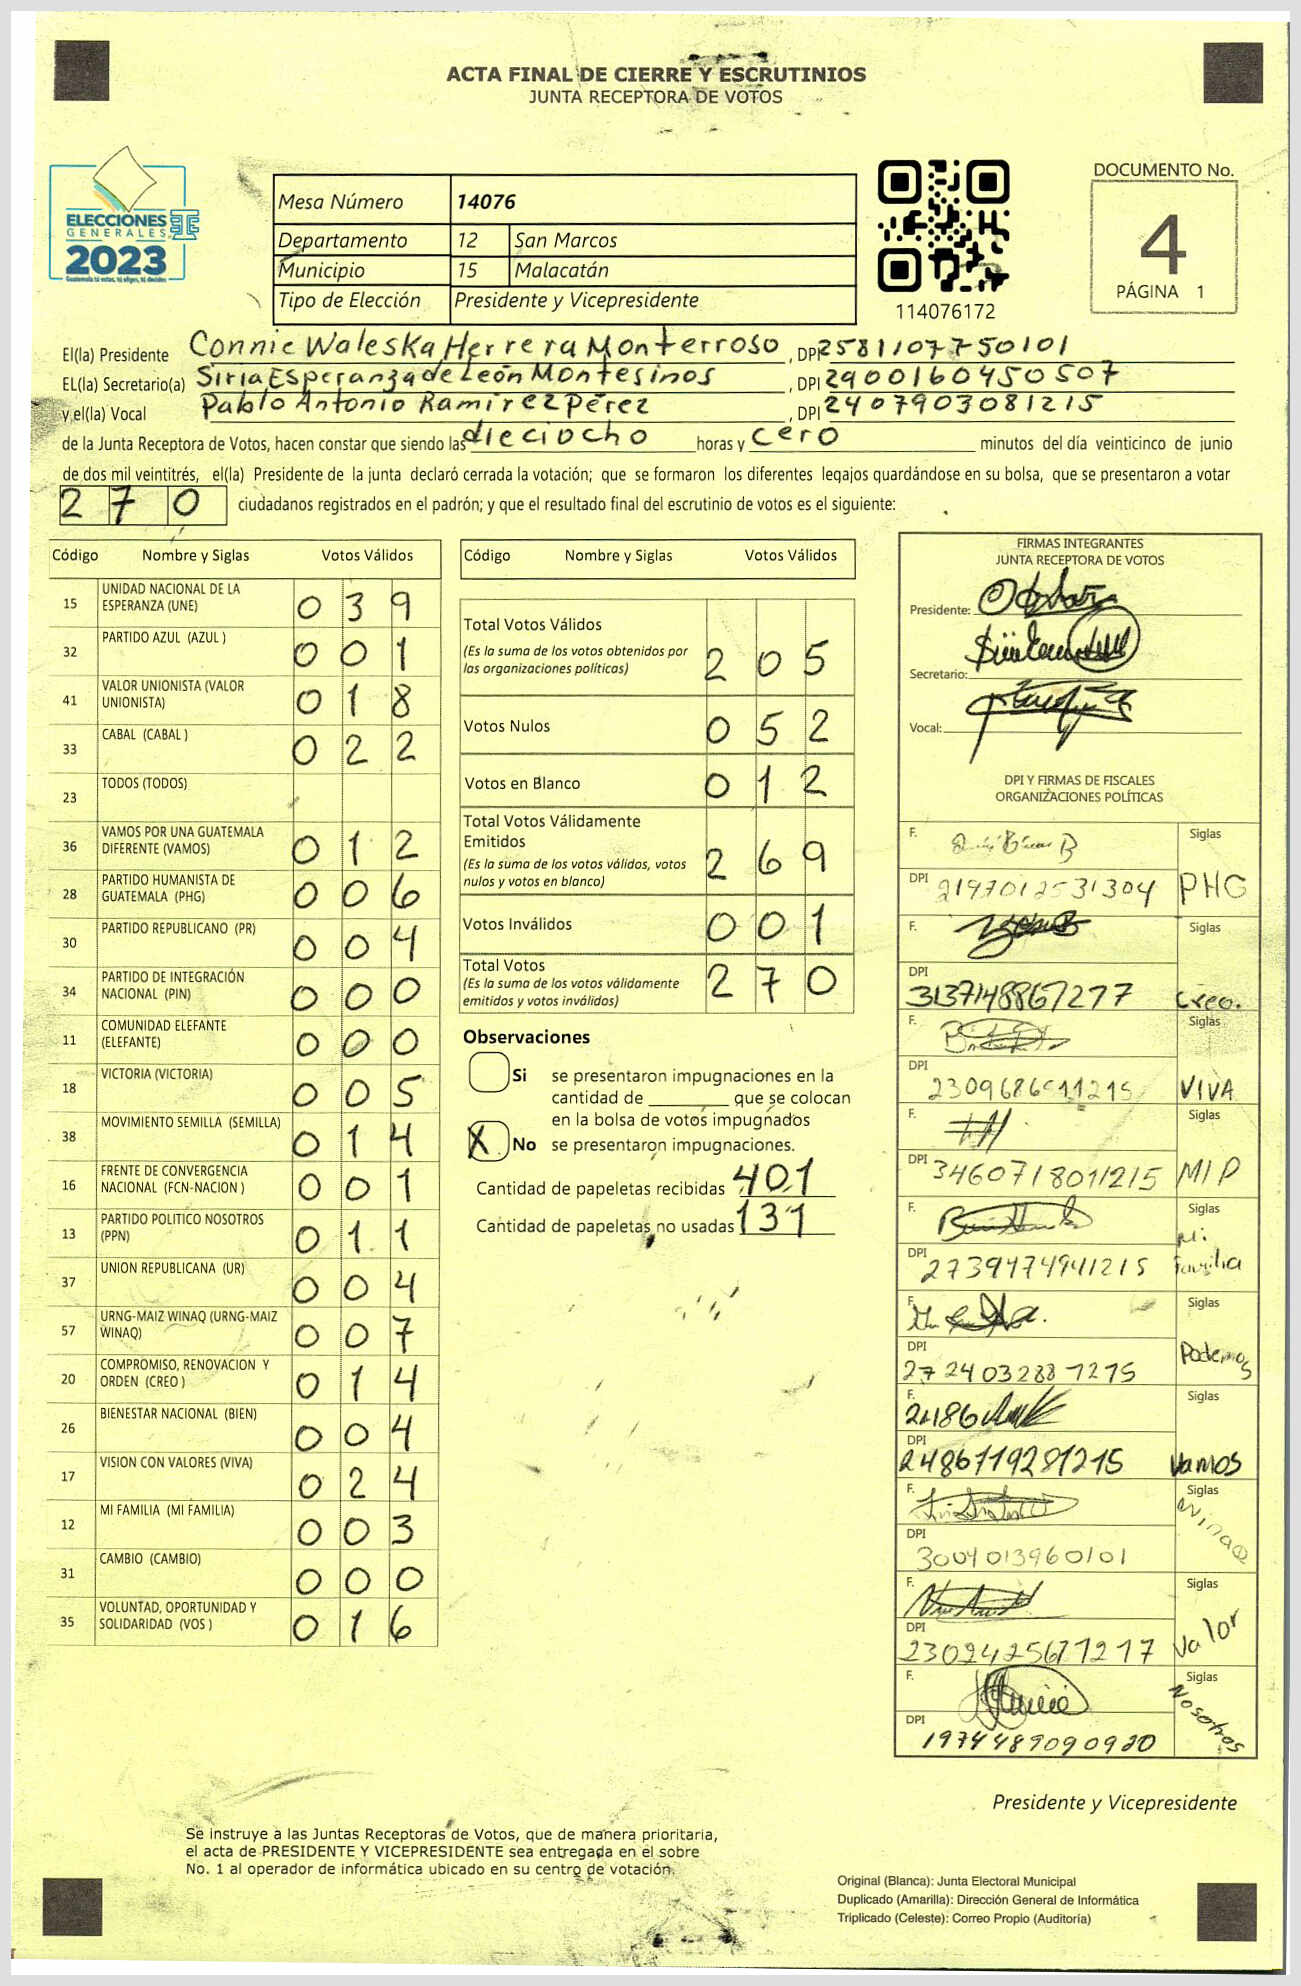 ACTA FINAL DE CIERRE Y ESCRUTINIOS
JUNTA RECEPTORA DE VOTOS
ELECCIONES
GENERALES
2023
Guatemala tú votas, tú eliges, tú decides
Mesa Número 14076
Departamento 12 San Marcos
Municipio 15 Malacatán
Tipo de Elección Presidente y Vicepresidente
114076172
DOCUMENTO No.
4
PÁGINA 1
El(la) Presidente Connie Waleska Herrera Monterroso, DPI 2581107750101
EL(la) Secretario(a) Siria Esperanza de León Montesinos, DPI 2900160450507
y el(la) Vocal Pablo Antonio Ramirez Pérez, DPI 2407903081215
de la Junta Receptora de Votos, hacen constar que siendo las dieciocho horas y cero minutos del día veinticinco de junio
de dos mil veintitrés, el(la) Presidente de la junta declaró cerrada la votación; que se formaron los diferentes legajos guardándose en su bolsa, que se presentaron a votar
270 ciudadanos registrados en el padrón; y que el resultado final del escrutinio de votos es el siguiente:
Código Nombre y Siglas Votos Válidos
15 UNIDAD NACIONAL DE LA ESPERANZA (UNE) 039
32 PARTIDO AZUL (AZUL ) 001
41 VALOR UNIONISTA (VALOR UNIONISTA) 018
33 CABAL (CABAL ) 022
23 TODOS (TODOS)
36 VAMOS POR UNA GUATEMALA DIFERENTE (VAMOS) 012
28 PARTIDO HUMANISTA DE GUATEMALA (PHG) 006
30 PARTIDO REPUBLICANO (PR) 004
34 PARTIDO DE INTEGRACIÓN NACIONAL (PIN) 000
11 COMUNIDAD ELEFANTE (ELEFANTE) 000
18 VICTORIA (VICTORIA) 005
38 MOVIMIENTO SEMILLA (SEMILLA) 014
16 FRENTE DE CONVERGENCIA NACIONAL (FCN-NACION ) 001
13 PARTIDO POLITICO NOSOTROS (PPN) 011
37 UNION REPUBLICANA (UR) 004
57 URNG-MAIZ WINAQ (URNG-MAIZ WINAQ) 007
20 COMPROMISO, RENOVACION Y ORDEN (CREO ) 014
26 BIENESTAR NACIONAL (BIEN) 004
17 VISION CON VALORES (VIVA) 024
12 MI FAMILIA (MI FAMILIA) 003
31 CAMBIO (CAMBIO) 000
35 VOLUNTAD, OPORTUNIDAD Y SOLIDARIDAD (VOS ) 016
Código Nombre y Siglas Votos Válidos
Total Votos Válidos
(Es la suma de los votos obtenidos por las organizaciones políticas) 205
Votos Nulos 052
Votos en Blanco 012
Total Votos Válidamente Emitidos
(Es la suma de los votos válidos, votos nulos y votos en blanco) 269
Votos Inválidos 001
Total Votos
(Es la suma de los votos válidamente emitidos y votos inválidos) 270
Observaciones
Si se presentaron impugnaciones en la
cantidad de ________ que se colocan
en la bolsa de votos impugnados
X No se presentaron impugnaciones.
Cantidad de papeletas recibidas 401
Cantidad de papeletas no usadas 131
FIRMAS INTEGRANTES
JUNTA RECEPTORA DE VOTOS
Presidente:
Secretario:
Vocal:
DPI Y FIRMAS DE FISCALES
ORGANIZACIONES POLÍTICAS
F. Siglas
DPI 2197012531304 PHG
F. Siglas
DPI 3137148867277 Creo.
F. Siglas
DPI VIVA
F. Siglas
DPI 3460718011215 MIP
F. Siglas
DPI 2739474941215 Mi Familia
F. Siglas
DPI 2724032887275 Podemos
F. Siglas
DPI 2486119281215 Vamos
F. Siglas
DPI 3004013960101 Winaq
F. Siglas
DPI 2302425671217 Valor
F. Siglas
DPI 1974489090920 Nosotros
Presidente y Vicepresidente
Se instruye a las Juntas Receptoras de Votos, que de manera prioritaria,
el acta de PRESIDENTE Y VICEPRESIDENTE sea entregada en el sobre
No. 1 al operador de informática ubicado en su centro de votación.
Original (Blanca): Junta Electoral Municipal
Duplicado (Amarilla): Dirección General de Informática
Triplicado (Celeste): Correo Propio (Auditoría)